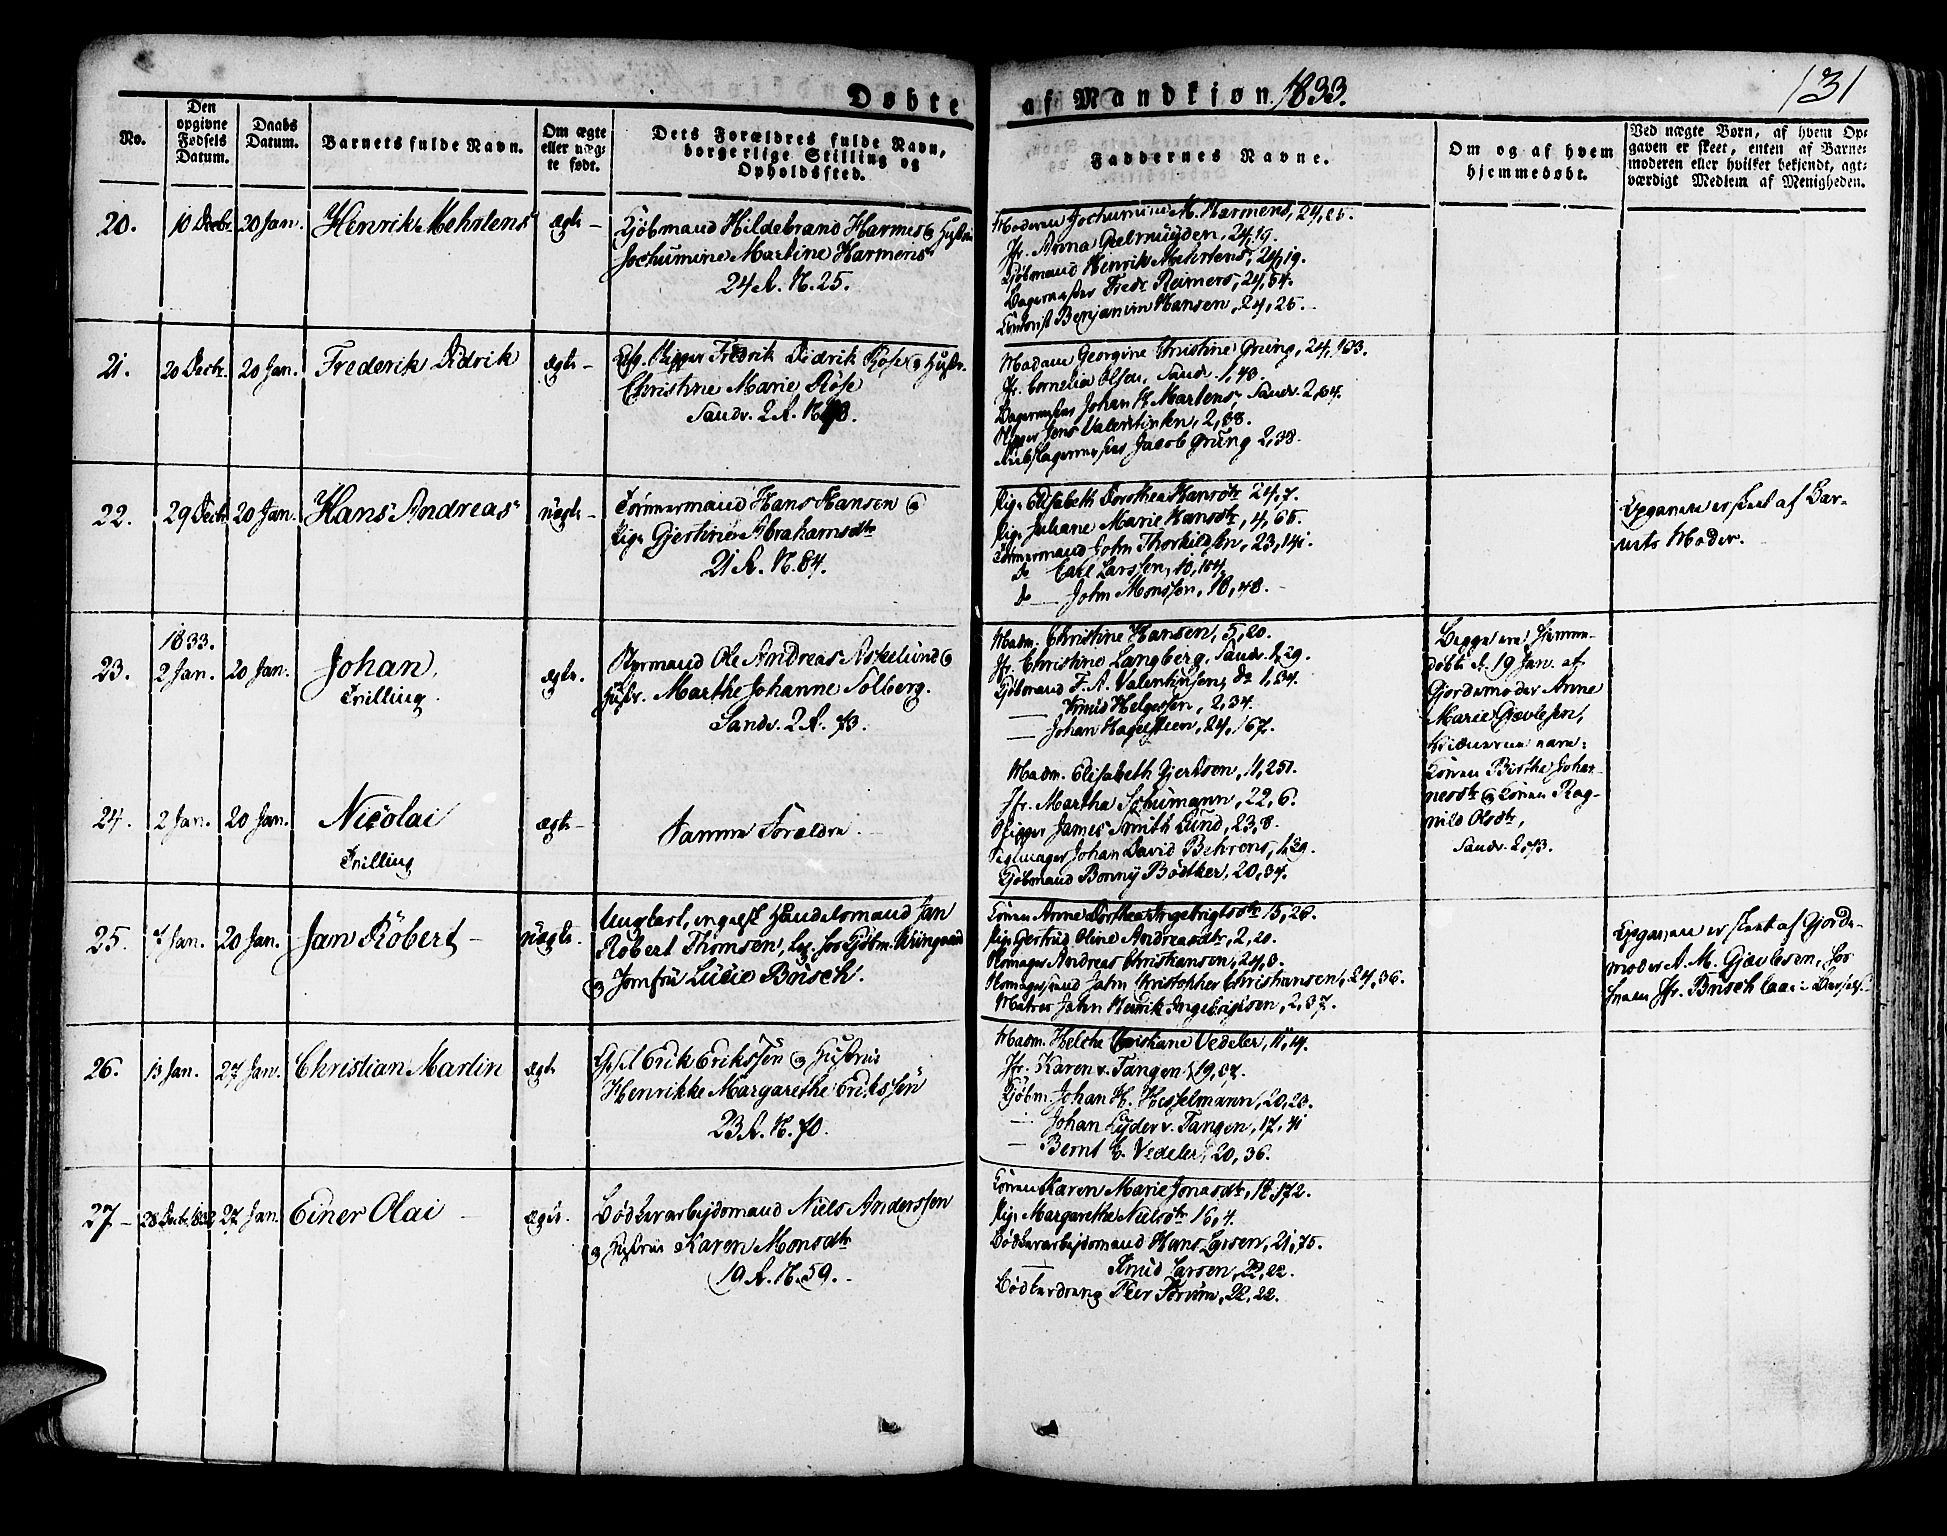 Døbte af Mandkjøn 1833.
131
No.
Den opgivne Fødsels Datum.
Daabs Datum.
Barnets fulde Navn.
Om ægte eller uægte født.
Dets Forældres fulde Navn, borgerlige Stilling og Opholdssted.
Faddernes Navne.
Om og af hvem hjemmedøbt.
Ved uægte Børn, af hvem Opgaven er skeet, enten af Barnemoderen eller hvilket bekjendt, agtværdigt Medlem af Menigheden.
20. 10 Decbr. 20 Jan. Henrik Mehrtens ægte
Kjøbmand Hildebrand Harmens
Jochumine Martine Harmens
24 R. N. 25.
Madame Jochumine M. Harmens, 24, 25.
Jfr. Anna Geelmuyden, 24, 19.
Kjøbmand Henrik Mehrtens, 24, 19.
Bagermester Fredr. Reimers, 24, 54.
Contorist Benjamin Hansen, 24, 25.
21. 20 Decbr. 20 Jan. Frederik Didrik ægte
Skipper Fredrik Didrik Røse og Hustr.
Christine Marie Røse
Sandv. 2 R.
Madam Georgine Christine Grung, 24, 103.
Jfr. Cornelia Olsen, Sandv. 1, 40.
Bagermester Johan H. Martens, Sandv. 2, 64.
Skipper Jens Valentinsen, 2, 68.
Jacob Grung 2, 38.
22. 29 Decbr. 20 Jan. Hans Andreas uægte
Tømmermand Hans Hansen og
Pige Gjertine Abrahamsdtr
21 R. N. 84.
Pige Elisabeth Dorothea Hansdtr 24, 7.
Pige Juliane Marie Hansdtr, 4, 65.
Tømmermand John Thorkildsen, 23, 141.
do Carl Larssen, 18, 104.
do John Monssen, 18, 48.
Opgaven er skeet af Bar-
nets Moder.
23. 1833. 2 Jan. 20 Jan. Johan, Trilling. ægte.
Styrmand Ole Andreas Askelund og
Hustr. Marthe Johanne Solberg.
Sandv. 2 R. 73.
Madm. Christine Hansen, 5, 20.
Jfr. Christine Langberg, Sandv. 1, 29.
Kjøbmand F. A. Valentinsen, do 1, 34.
Knud Helgesen, 2, 34.
Johan Hagelsteen, 24, 167.
Begge ere hjemme-
døbte d. 19 Jan. af
Gjordemoder Anne
Marie Gjævlesen,
Konen Birthe Johan-
nesdtr og Konen Rag-
nild Olsdtr,
Sandv. 2, 73.
24. 2 Jan. 20 Jan. Nicolai Trilling ægte
Samme Forældre.
Madm. Elisabeth Gjertsen, 11, 251.
Jfr. Martha Schumann, 22, 6.
Skipper James Smith Lund, 23, 8.
Seglmager Johan David Behrens, 1, 29.
Kjøbmand Bonny Bødtker, 20, 34.
25. 7 Jan. 20 Jan. Jan Robert uægte.
Ungkarl, engelsk Handelsmand Jan
Robert Thomsen, log. hos Kjøbm.
og Jomfru Lucie Busch.
Konen Anne Dorthea Ingebrigtsdtr 15, 26.
Pige Gertrud Oline Andreasdtr, 2, 20.
Andreas Christiansen, 24, 8.
Jahn Christopher Christiansen, 24, 36.
Matros Jahn Henrik Ingebrigtsen, 2, 37.
Opgaven er skeet af Gjorde-
moder A. M. Gjævlesen, hos
hvem Jfr. Busch laae i Barsel.
26. 13 Jan. 27 Jan. Christian Martin ægte
Erik Erikssen og Hustrue
Henrikke Margarethe Erikssen
23 R. N. 70.
Madm. Helche Christiane Vedeler, 11, 14.
Jfr. Karen v. Tangen, 19, 87.
Kjøbm. Johan H. Hesselmann, 20, 20.
Johan Lyder v. Tangen, 17, 41
Bernt C. Vedeler, 20, 36.
27. 28 Decbr. 1832 27 Jan. Einer Olai ægte.
Bødkerarbejdsmand Niels Anderssen
og Hustrue Karen Monsdtr
19 R. N. 59.
Konen Karen Marie Jonasdtr, 18, 172.
Pige Margarethe Nielsdtr 16, 4.
Bødkerarbejdsmand Hans Larsen, 21, 75.
Knud Larsen, 22, 22.
Bødkerdreng Peer Forum, 22, 22.